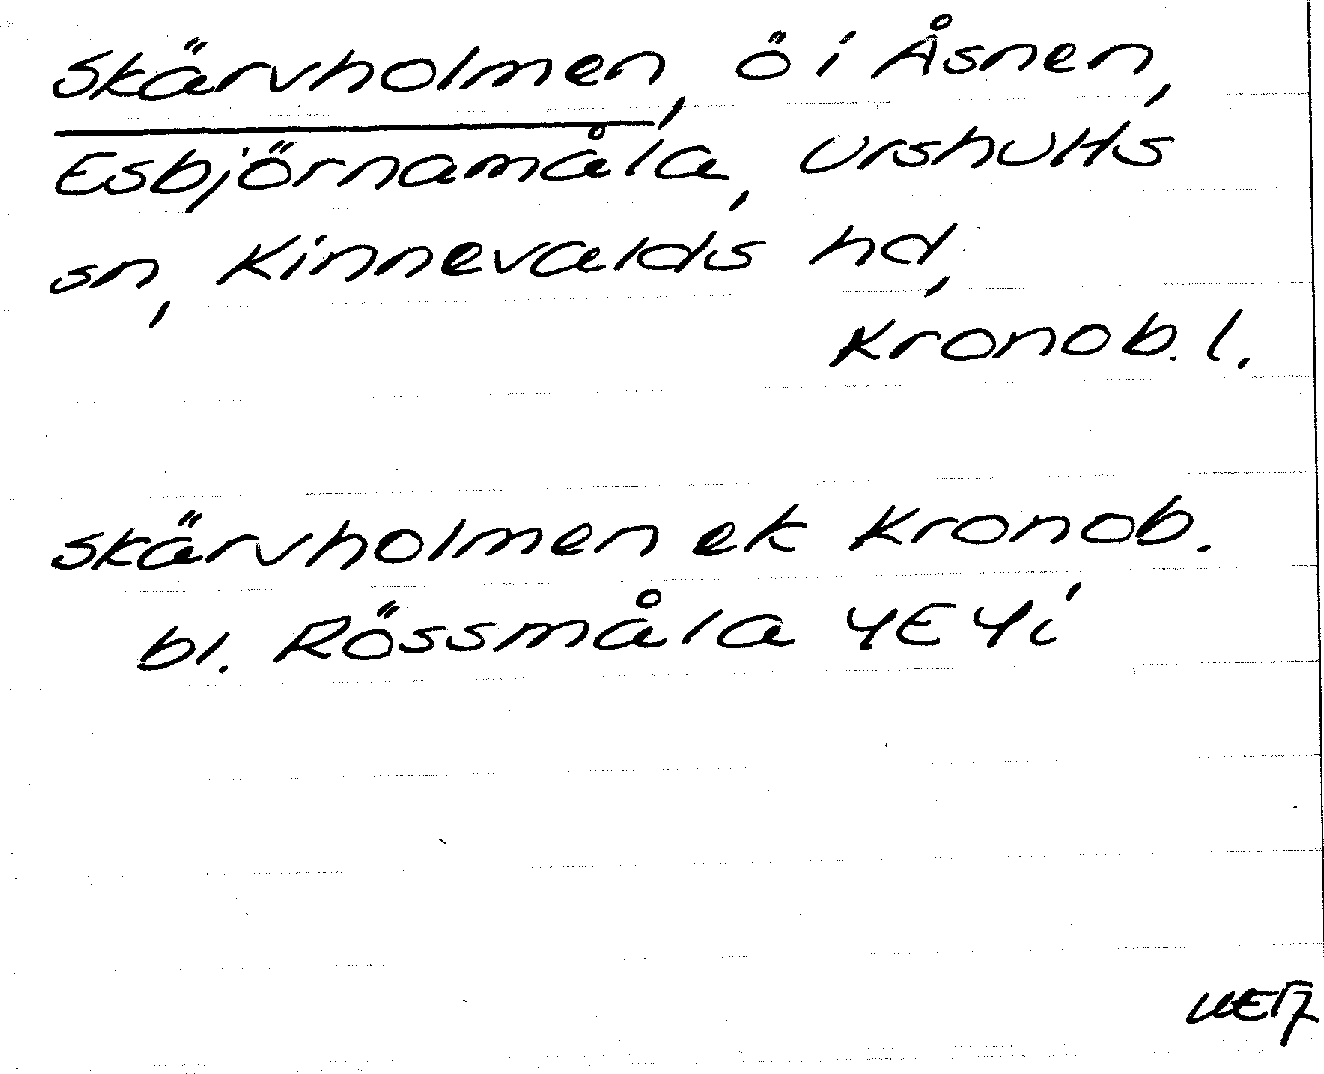 Skärvholmen, ö i Åsnen,
Esbjörnamåla, Urshults
sn, Kinnevalds hd,
Kronob. l.
Skärvholmen ek Kronob.
bl. Rössmåla 4E4i